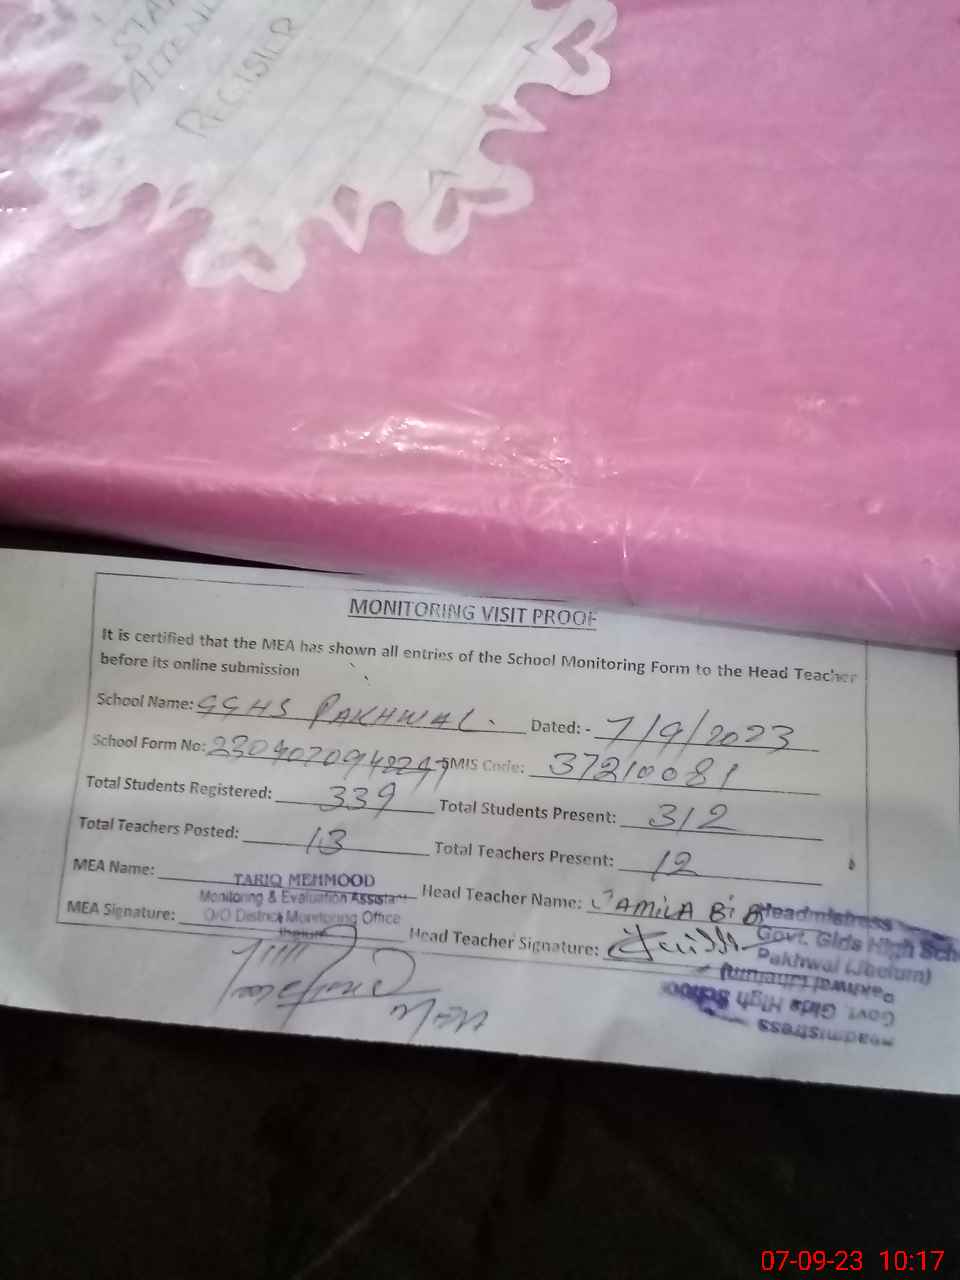 STAFF
ATTEN
REGISTER
MONITORING VISIT PROOF
It is certified that the MEA has shown all entries of the School Monitoring Form to the Head Teacher
before its online submission
School Name: GGHS PAKHWAL. Dated: - 7/9/2023
School Form No: EMIS Code: 37210081
Total Students Registered: 339 Total Students Present: 312
Total Teachers Posted: 13 Total Teachers Present: 12
MEA Name: TARIQ MEHMOOD
Monitoring & Evaluation Assistant
Head Teacher Name: JAMILA BiBi
MEA Signature: O/O District Monitoring Office
Jhelum
Head Teacher Signature:
Headmistress
Govt. Glds High Sch
Pakhwal (Jhelum)
MEA
Headmistress
Govt. Glds High School
Pakhwal (Jhelum)
07-09-23 10:17